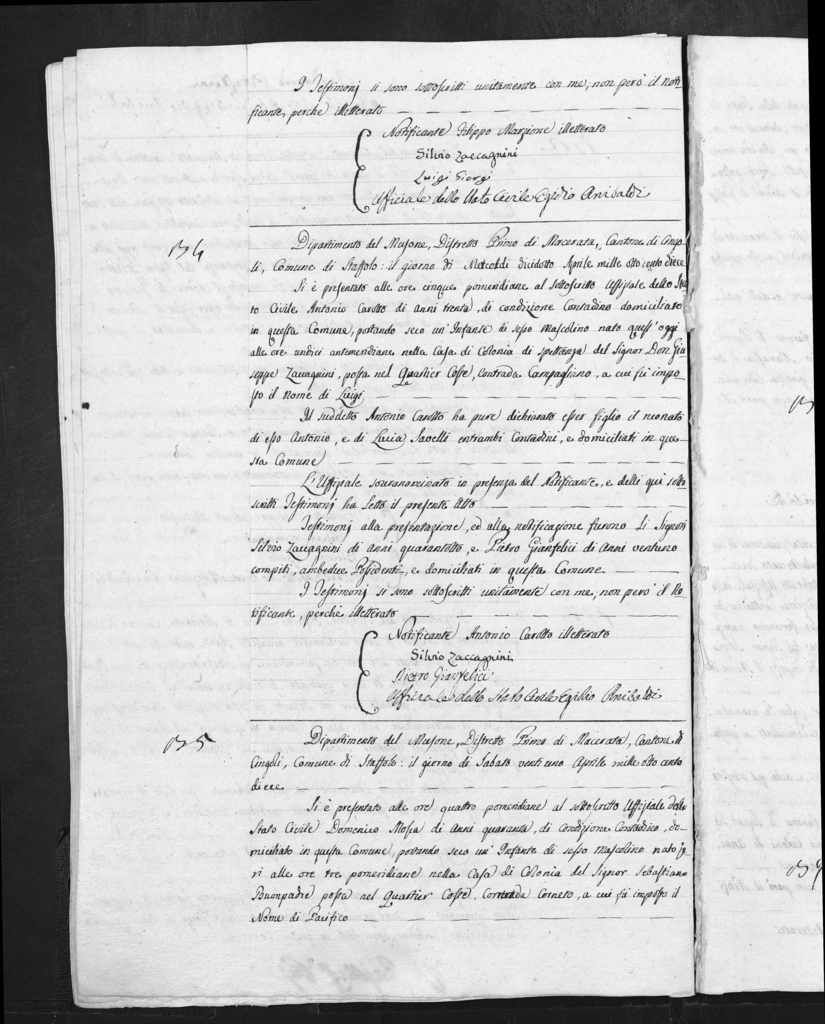 I Testimonj si sono sottoscritti unitamente con me, non però il Noti-
ficante, perche illetterato
Notificante Filippo Marzione illetterato
Silvio Zaccagnini
Luigi Giorgi
Uffiziale dello Stato Civile Egidio Anibaldi
Dipartimento del Musone, Distretto Primo di Macerata, Cantone di Cingo-
li, Comune di Staffolo: il giorno di Mercoldì dicidotto Aprile mille otto cento diece
Si è presentato alle ore cinque pomeridiane al sottoscritto Uffiziale dello Sta-
to Civile Antonio Carotto di Anni trenta, di condizione Contadino domiciliato
in questa Comune, portando seco un' Infante di sesso Mascolino nato quest' oggi
alle ore undici antemeridiane nella Casa di Colonia di spettanza del Signor Don Giu-
seppe Zaccagnini, posta nel Quartier Coste, Contrada Campagliano, a cui fu impo-
sto il Nome di Luigi
Il suddetto Antonio Carotto ha pure dichiarato esser figlio il neonato
di esso Antonio, e di Lucia Savelli entrambi Contadini, e domiciliati in que-
sta Comune
L' Uffiziale sovranominato in presenza del Notificante, e delli qui sotto
scritti Testimonj ha Letto il presente Atto
Testimonj alla presentazione, ed alla notificazione furono Li Signori
Silvio Zaccagnini di Anni quarantotto, e Pietro Gianfelici di Anni ventuno
compiti, ambedue Possidenti, e domiciliati in questa Comune
I Testimonj si sono sottoscritti unitamente con me, non però il No-
tificante, perche illetterato
Notificante Antonio Carotto illetterato
Silvio Zaccagnini
Pietro Gianfelici
Uffiziale dello Stato Civile Egidio Anibaldi
Dipartimento del Musone, Distretto Primo di Macerata, Cantone di
Cingoli, Comune di Staffolo: il giorno di Sabato vent' uno Aprile mille otto cento
diece
Si è presentato alle ore quattro pomeridiane al sottoscritto Uffiziale dello
Stato Civile Domenico Mosca di Anni quaranta, di Condizione Contadino, do-
miciliato in questa Comune, portando seco un' Infante di sesso Mascolino nato je-
ri alle ore tre pomeridiane nella Casa di Colonia del Signor Sebastiano
Buonpadre posta nel Quartier Coste, Contrada Corneto, a cui fu imposto il
Nome di Pacifico